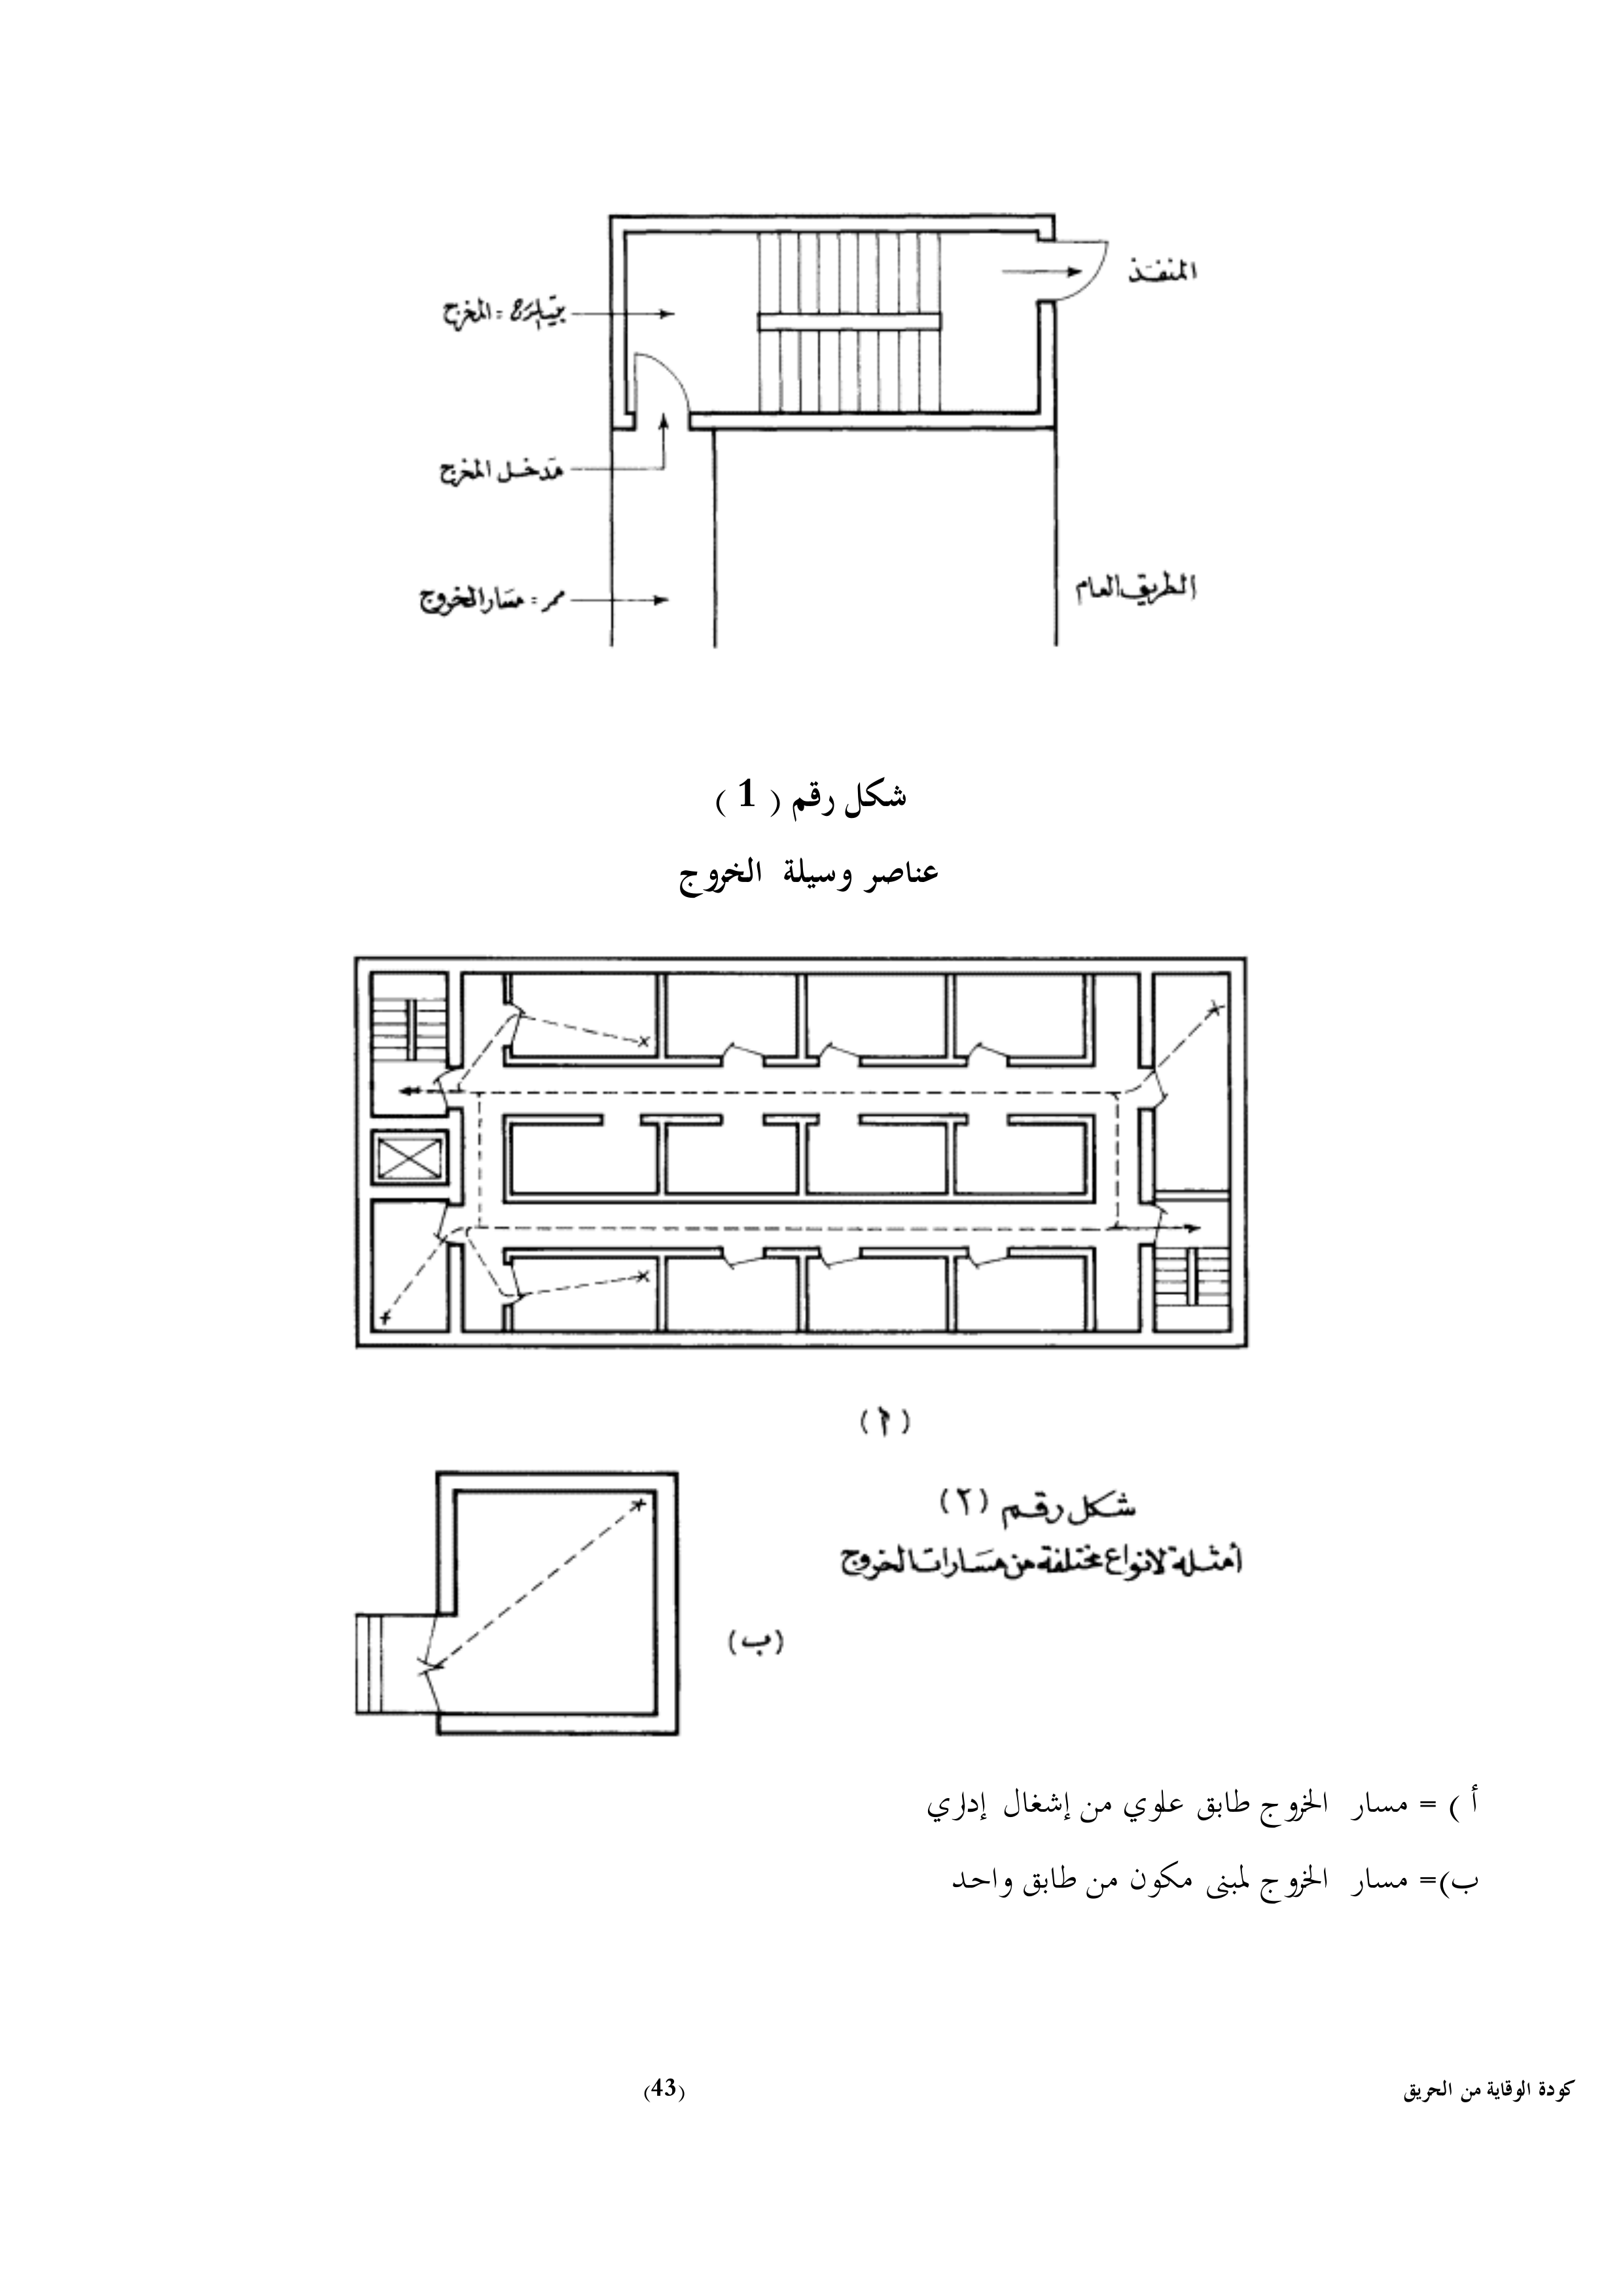 المنفذ
بيت الدرج = المخرج
مدخل المخرج
ممر = مسار الخروج
الطريق العام
شكل رقم ( 1 )
عناصر وسيلة الخروج
(أ)
شكل رقم (٢)
أمثلة لانواع مختلفة من مسارات الخروج
(ب)
أ ) = مسار الخروج طابق علوي من إشغال إداري
ب)= مسار الخروج لمبنى مكون من طابق واحد
كودة الوقاية من الحريق
(43)